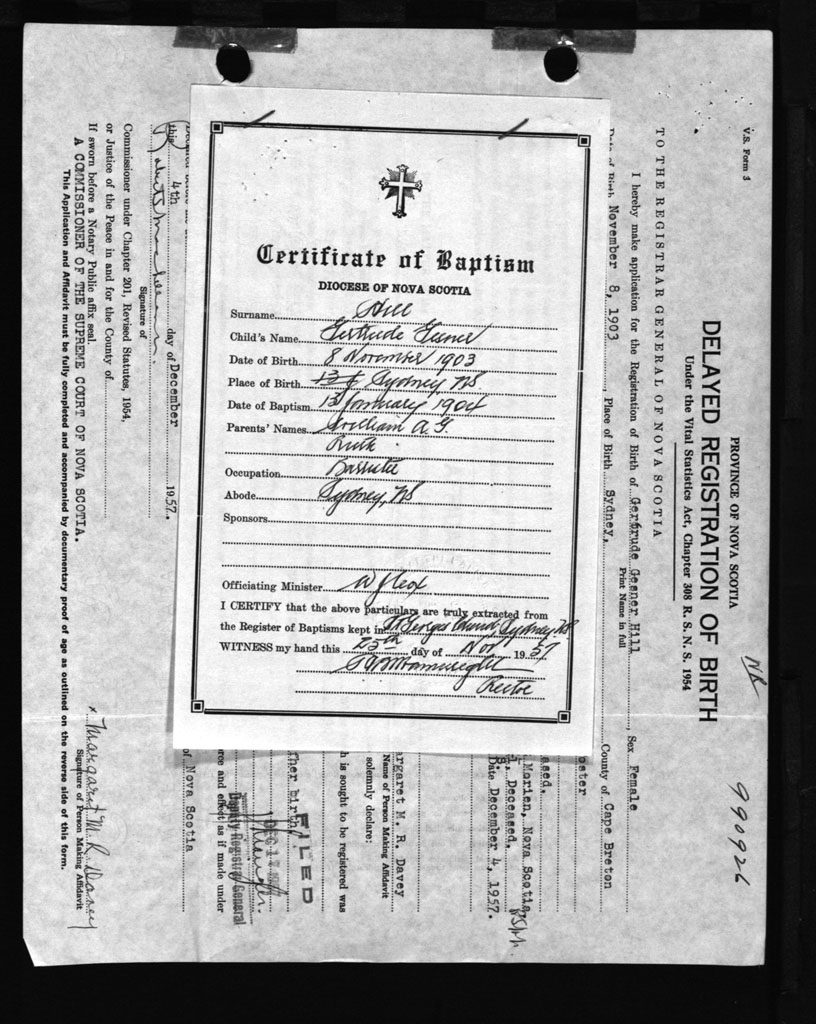 Certificate of Baptism
DIOCESE OF NOVA SCOTIA
Surname Hill
Child's Name Gertrude Gesner
Date of Birth 8 November 1903
Place of Birth 13 Sydney, NS.
Date of Baptism 13 January 1904
Parents' Names William A. G.
Ruth
Occupation Barrister
Abode Sydney, NS
Sponsors
Officiating Minister W J Cox
I CERTIFY that the above particulars are truly extracted from
the Register of Baptisms kept in St Georges Church Sydney NS
WITNESS my hand this 25th day of Nov 1957
Rector
V.S. Form 3
NR
990926
PROVINCE OF NOVA SCOTIA
DELAYED REGISTRATION OF BIRTH
Under the Vital Statistics Act, Chapter 308 R. S. N. S. 1954
TO THE REGISTRAR GENERAL OF NOVA SCOTIA
I hereby make application for the Registration of Birth of Gertrude Gesner Hill, Sex Female
Print Name in full
Date of Birth November 8, 1903, Place of Birth Sydney, County of Cape Breton
ased.
Morien, Nova Scotia
Deceased.
Date December 4, 1957.
argaret M. R. Davey
Name of Person Making Affidavit
solemnly declare:
h is sought to be registered was
her birth.
FILED
DEC
Deputy Registrar General
rce and effect as if made under
of Nova Scotia
this 4th day of December 1957.
Signature of
Commissioner under Chapter 201, Revised Statutes, 1954,
or Justice of the Peace in and for the County of
If sworn before a Notary Public affix seal.
A COMMISSIONER OF THE SUPREME COURT OF NOVA SCOTIA.
x Margaret M. R. Davey
Signature of Person Making Affidavit
This Application and Affidavit must be fully completed and accompanied by documentary proof of age as outlined on the reverse side of this form.